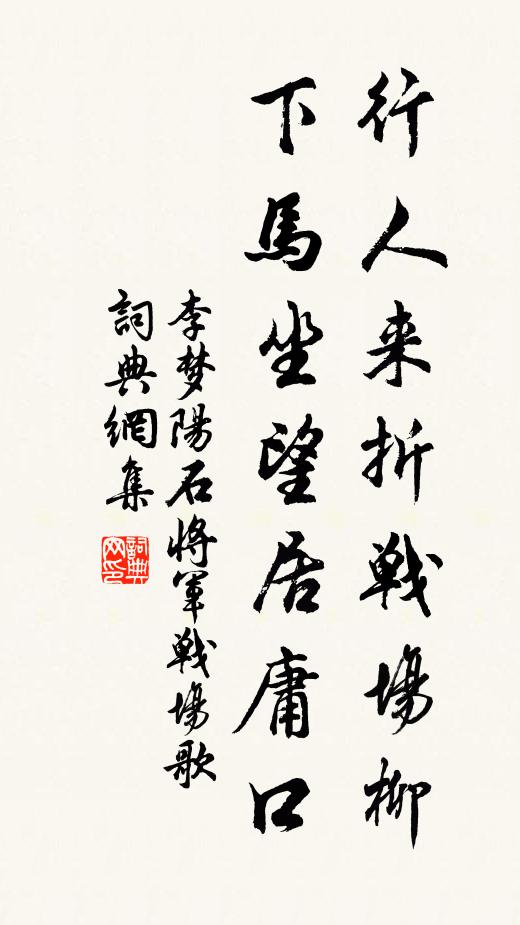 行人来折戦場柳
下馬坐望居庸口
李梦陽石将軍戦場歌
詞典網集
詞典网印